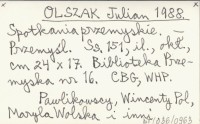 OLSZAK Julian 1988.
Spotkania przemyskie. –
Przemyśl. Ss, 151, il., okł.,
cm 24 x 17. Biblioteka Prze-
myska nr 16. CBG, WHP.
Pawlikowscy, Wincenty Pol,
Maryla Wolska i inni